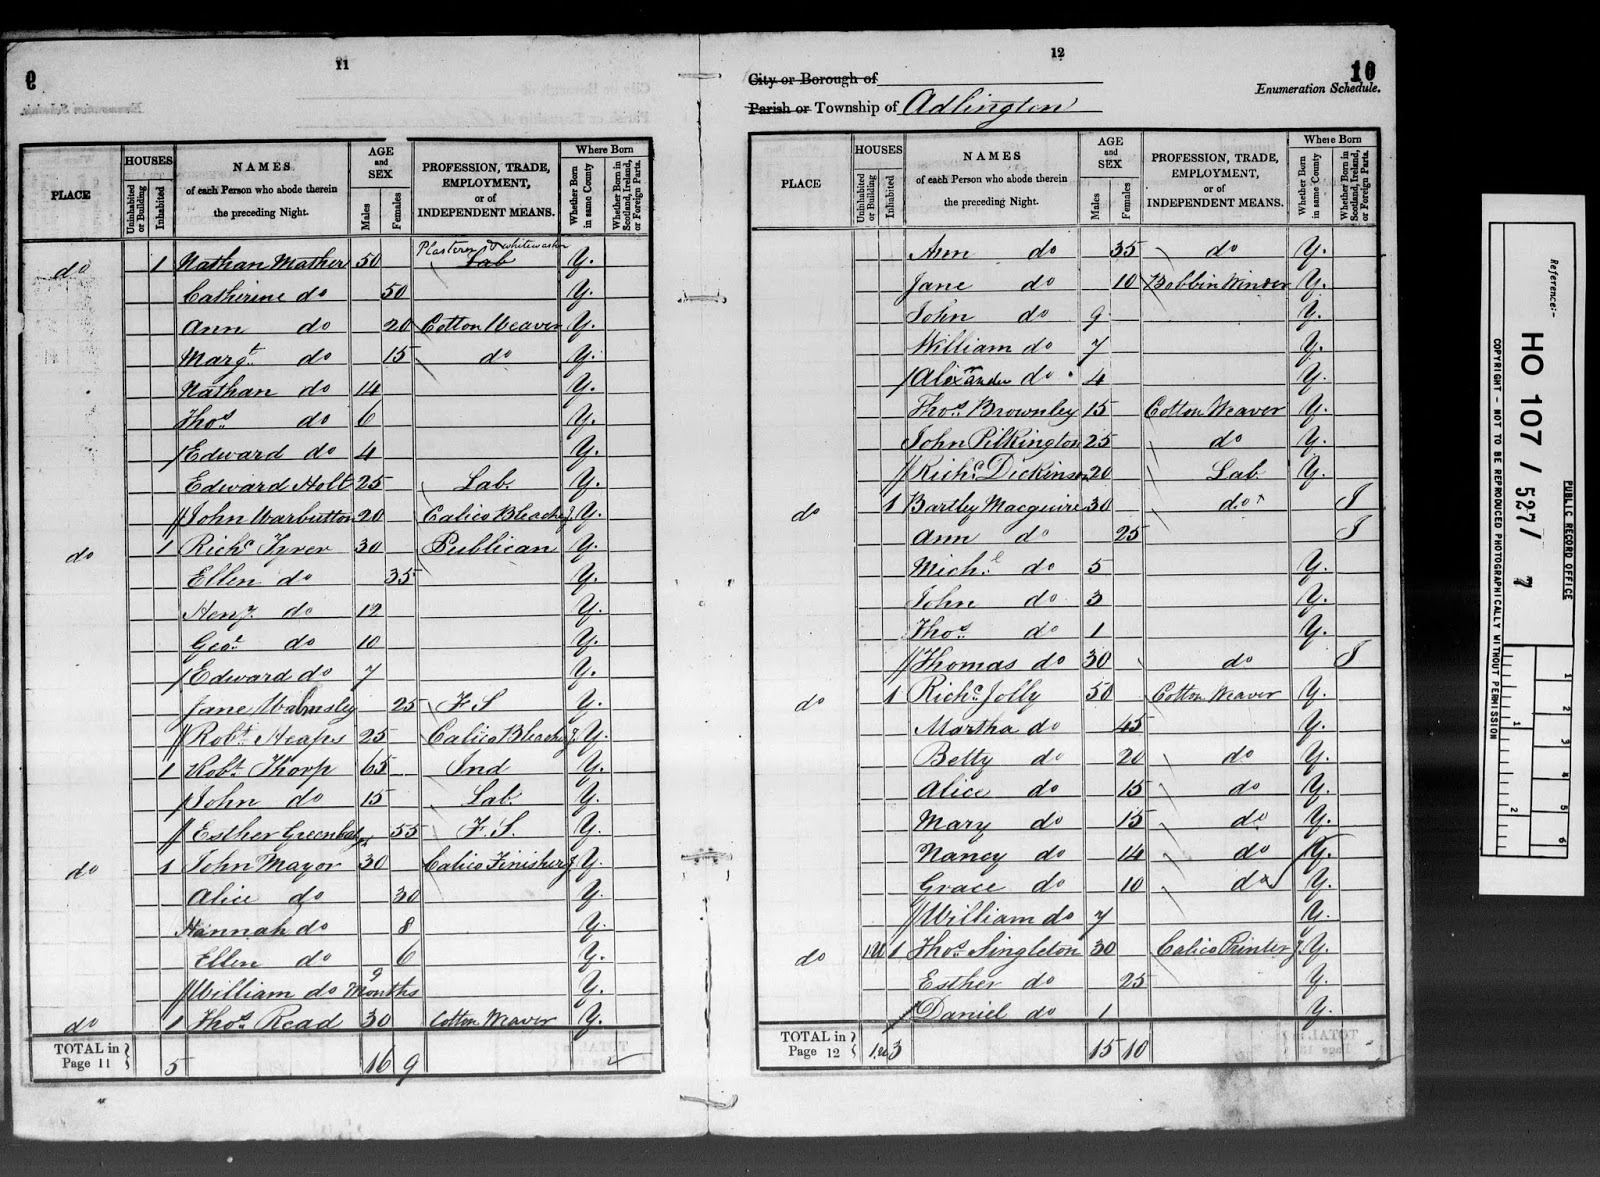 9
11
PLACE
HOUSES
Uninhabited or Building
Inhabited
NAMES
of each Person who abode therein
the preceding Night.
AGE and SEX
Males
Females
PROFESSION, TRADE,
EMPLOYMENT,
or of
INDEPENDENT MEANS.
Where Born
Whether Born in same County
Whether Born in Scotland, Ireland, or Foreign Parts.
Plasterer & whitewasher
do 1 Nathan Mather 50 Lab Y.
Catherine do 50 Y.
Ann do 20 Cotton Weaver Y.
Margt do 15 do Y.
Nathan do 14 Y.
Thos do 6 Y.
/ Edward do 4 Y.
Edward Holt 25 Lab. Y.
// John Warbutton 20 Calico Bleacher J. Y.
do 1 Richd Tyrer 30 Publican Y.
Ellen do 35 Y.
Heny do 12 Y.
Geo. do 10 Y.
/ Edward do 7 Y.
Jane Walmsley 25 F.S Y.
// Robt Heaps 25 Calico Bleacher J. Y.
1 Robt Thorp 65 Ind Y.
/ John do 15 Lab. Y.
// Esther 55 F.S. Y.
do 1 John Mayor 30 Calico Finisher J Y.
Alice do 30 Y.
Hannah do 8 Y.
Ellen do 6 Y.
// William do 9 Months Y.
do 1 Thos Read 30 Cotton Weaver Y.
TOTAL in Page 11 } 5 16 9
12
10
City or Borough of
Enumeration Schedule.
Parish or Township of Adlington
PLACE
HOUSES
Uninhabited or Building
Inhabited
NAMES
of each Person who abode therein
the preceding Night.
AGE and SEX
Males
Females
PROFESSION, TRADE,
EMPLOYMENT,
or of
INDEPENDENT MEANS.
Where Born
Whether Born in same County
Whether Born in Scotland, Ireland, or Foreign Parts.
Ann do 35 do Y.
Jane do 10 Bobbin Winder Y.
John do 9 Y.
William do 7 Y.
/ Alexander do 4 Y.
Thos Brownley 15 Cotton Weaver Y.
John Pilkington 25 do Y.
// Richd Dickinson 20 Lab. Y.
do 1 Bartley Macguire 30 do I
Ann do 25 I
Michl do 5 Y.
John do 3 Y.
Thos do 1 Y.
// Thomas do 30 do I
do 1 Richd Jolly 50 Cotton Weaver Y.
Martha do 45 Y.
Betty do 20 do Y.
Alice do 15 do Y.
Mary do 15 do Y.
Nancy do 14 do Y.
Grace do 10 do Y.
// William do 7 Y.
do 1U 1 Thos Singleton 30 Calico Printer J. Y.
Esther do 25 Y.
/ Daniel do 1 Y.
TOTAL in Page 12 } 1.U 3 15 10
PUBLIC RECORD OFFICE
Reference:-
HO 107 / 527 / 7
COPYRIGHT - NOT TO BE REPRODUCED PHOTOGRAPHICALLY WITHOUT PERMISSION
1
2
3
4
5
6
1
2